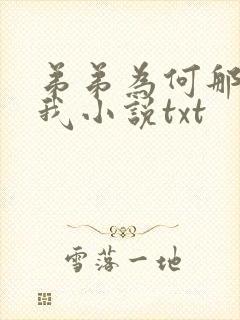 弟弟為何那
我小說txt
雪落一地